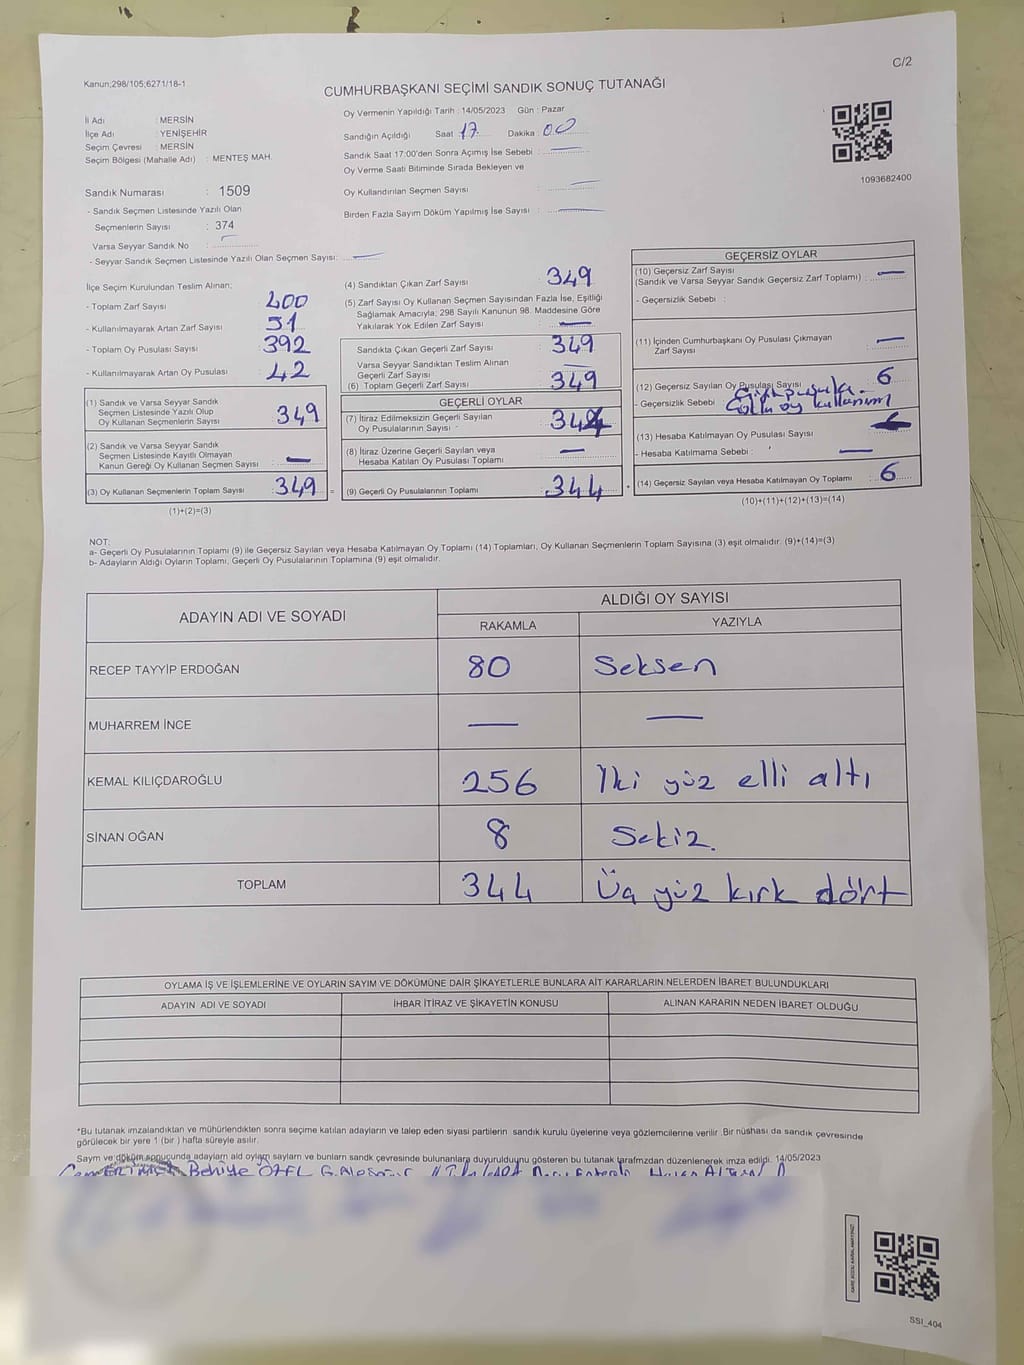 C/2
Kanun;298/105;6271/18-1
CUMHURBAŞKANI SEÇİMİ SANDIK SONUÇ TUTANAĞI
İl Adı : MERSİN
İlçe Adı : YENİŞEHİR
Seçim Çevresi : MERSİN
Seçim Bölgesi (Mahalle Adı) : MENTEŞ MAH.
Sandık Numarası : 1509
- Sandık Seçmen Listesinde Yazılı Olan
Seçmenlerin Sayısı : 374
Varsa Seyyar Sandık No :
- Seyyar Sandık Seçmen Listesinde Yazılı Olan Seçmen Sayısı: —
Oy Vermenin Yapıldığı Tarih : 14/05/2023 Gün : Pazar
Sandığın Açıldığı Saat 17 Dakika : 00
Sandık Saat 17:00'den Sonra Açımış İse Sebebi : —
Oy Verme Saati Bitiminde Sırada Bekleyen ve
Oy Kullandırılan Seçmen Sayısı : —
Birden Fazla Sayım Döküm Yapılmış İse Sayısı : —
1093682400
İlçe Seçim Kurulundan Teslim Alınan;
- Toplam Zarf Sayısı : 400
- Kullanılmayarak Artan Zarf Sayısı : 51
- Toplam Oy Pusulası Sayısı : 392
- Kullanılmayarak Artan Oy Pusulası : 42
(1) Sandık ve Varsa Seyyar Sandık
Seçmen Listesinde Yazılı Olup
Oy Kullanan Seçmenlerin Sayısı : 349
(2) Sandık ve Varsa Seyyar Sandık
Seçmen Listesinde Kayıtlı Olmayan
Kanun Gereği Oy Kullanan Seçmen Sayısı : —
(3) Oy Kullanan Seçmenlerin Toplam Sayısı : 349 =
(1)+(2)=(3)
(4) Sandıktan Çıkan Zarf Sayısı : 349
(5) Zarf Sayısı Oy Kullanan Seçmen Sayısından Fazla İse, Eşitliği
Sağlamak Amacıyla; 298 Sayılı Kanunun 98. Maddesine Göre
Yakılarak Yok Edilen Zarf Sayısı : —
Sandıkta Çıkan Geçerli Zarf Sayısı : 349
Varsa Seyyar Sandıktan Teslim Alınan
Geçerli Zarf Sayısı :
(6) Toplam Geçerli Zarf Sayısı : 349
GEÇERLİ OYLAR
(7) İtiraz Edilmeksizin Geçerli Sayılan
Oy Pusulalarının Sayısı : 344
(8) İtiraz Üzerine Geçerli Sayılan veya
Hesaba Katılan Oy Pusulası Toplamı : —
(9) Geçerli Oy Pusulalarının Toplamı : 344 +
GEÇERSİZ OYLAR
(10) Geçersiz Zarf Sayısı
(Sandık ve Varsa Seyyar Sandık Geçersiz Zarf Toplamı) : —
- Geçersizlik Sebebi :
(11) İçinden Cumhurbaşkanı Oy Pusulası Çıkmayan
Zarf Sayısı : —
(12) Geçersiz Sayılan Oy Pusulası Sayısı : 6
- Geçersizlik Sebebi : oy kullanım
(13) Hesaba Katılmayan Oy Pusulası Sayısı :
- Hesaba Katılmama Sebebi : —
(14) Geçersiz Sayılan veya Hesaba Katılmayan Oy Toplamı : 6
(10)+(11)+(12)+(13)=(14)
NOT:
a- Geçerli Oy Pusulalarının Toplamı (9) ile Geçersiz Sayılan veya Hesaba Katılmayan Oy Toplamı (14) Toplamları, Oy Kullanan Seçmenlerin Toplam Sayısına (3) eşit olmalıdır. (9)+(14)=(3)
b- Adayların Aldığı Oyların Toplamı, Geçerli Oy Pusulalarının Toplamına (9) eşit olmalıdır.
ADAYIN ADI VE SOYADI ALDIĞI OY SAYISI
RAKAMLA YAZIYLA
RECEP TAYYİP ERDOĞAN 80 Seksen
MUHARREM İNCE — —
KEMAL KILIÇDAROĞLU 256 İki yüz elli altı
SİNAN OĞAN 8 Sekiz.
TOPLAM 344 Üç yüz kırk dört
OYLAMA İŞ VE İŞLEMLERİNE VE OYLARIN SAYIM VE DÖKÜMÜNE DAİR ŞİKAYETLERLE BUNLARA AİT KARARLARIN NELERDEN İBARET BULUNDUKLARI
ADAYIN ADI VE SOYADI İHBAR İTİRAZ VE ŞİKAYETİN KONUSU ALINAN KARARIN NEDEN İBARET OLDUĞU
*Bu tutanak imzalandıktan ve mühürlendikten sonra seçime katılan adayların ve talep eden siyasi partilerin sandık kurulu üyelerine veya gözlemcilerine verilir .Bir nüshası da sandık çevresinde
görülecek bir yere 1 (bir ) hafta süreyle asılır.
Sayım ve döküm sonucunda adayların aldığı oyların sayılarını ve bunların sandık çevresinde bulunanlara duyurulduğunu gösteren bu tutanak tarafımızdan düzenlenerek imza edildi. 14/05/2023
Behiye ÖZEL
KARE KODU KARALAMAYINIZ!
SSİ_404